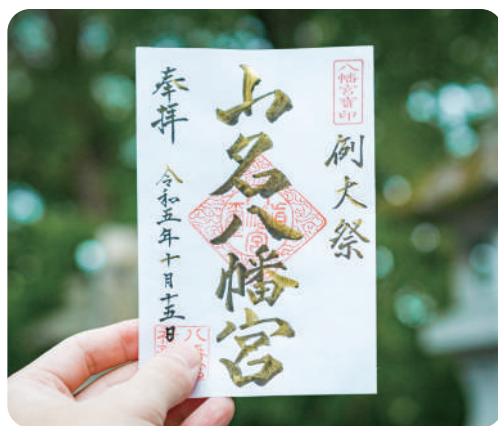 八幡宮寶印
例大祭
山名八幡宮
奉拝
令和五年十月十五日